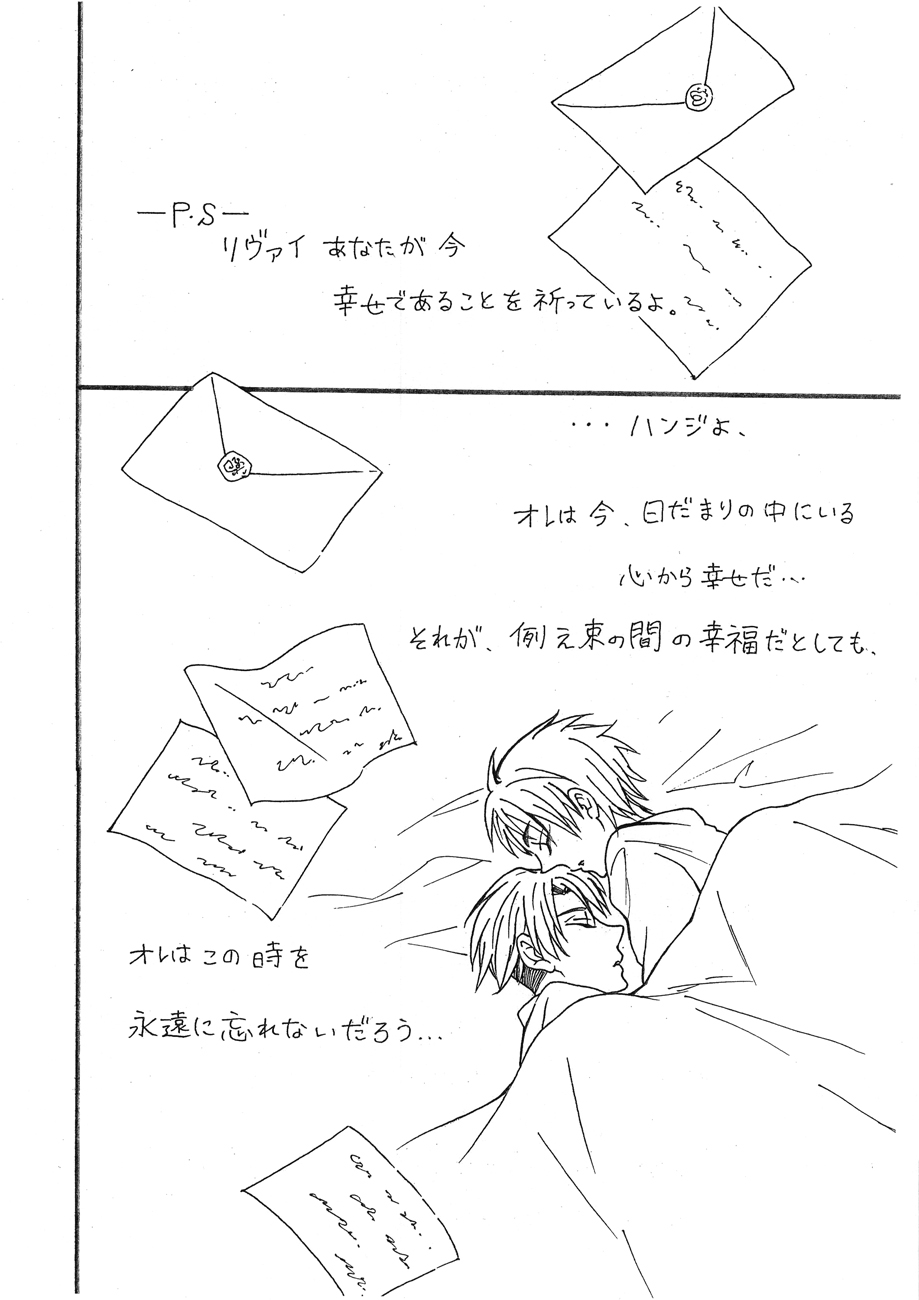 —P.S—
リヴァイ あなたが 今
幸せであることを 祈っているよ。
･･･ ハンジよ、
オレは 今、日だまりの中にいる
心から 幸せだ･･･
それが、例え束の間の幸福だとしても、
オレは この 時を
永遠に 忘れないだろう･･･